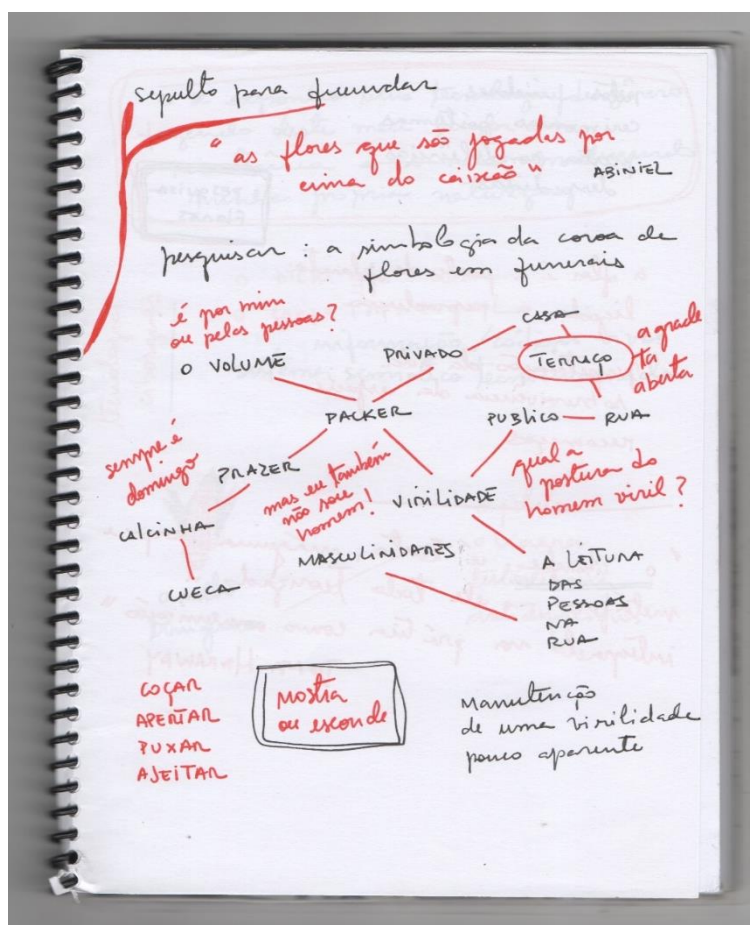 sepulto para fecundar
"as flores que são jogadas por
cima do caixão"
ABINIEL
pesquisar: a simbologia da coroa de
flores em funerais
é por mim
ou pelas pessoas?
O VOLUME
PRIVADO
CASA
TERRAÇO
a grade
tá
aberta
PACKER
PUBLICO
RUA
sempre é
domingo
PRAZER
mas eu também
não sou
homem!
VIRILIDADE
qual a
postura do
homem viril?
CALCINHA
MASCULINIDADES
CUECA
A LEITURA
DAS
PESSOAS
NA
RUA
COÇAR
APERTAR
PUXAR
AJEITAR
MOSTRA
ou esconde
Manutenção
de uma virilidade
pouco aparente